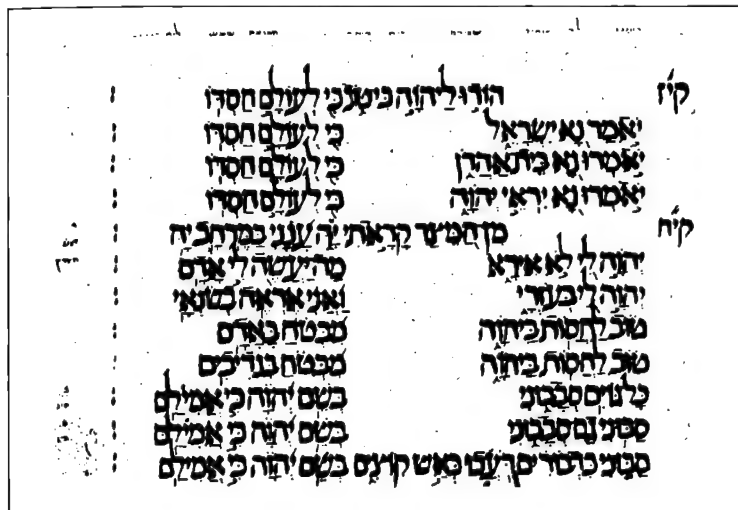 קיז הודו ליהוה כי טוב כי לעולם חסדו :
יאמר נא ישראל כי לעולם חסדו :
יאמרו נא בית אהרן כי לעולם חסדו :
יאמרו נא יראי יהוה כי לעולם חסדו :
קיח מן המיצר קראתי יה ענני במרחב יה :
יהוה לי לא אירא מה יעשה לי אדם :
יהוה לי בעזרי ואני אראה בשנאי :
טוב לחסות ביהוה מבטח באדם :
טוב לחסות ביהוה מבטח בנדיבים :
כל גוים סבבוני בשם יהוה כי אמילם :
סבוני גם סבבוני בשם יהוה כי אמילם :
סבוני כדבורים דעכו כאש קוצים בשם יהוה כי אמילם :